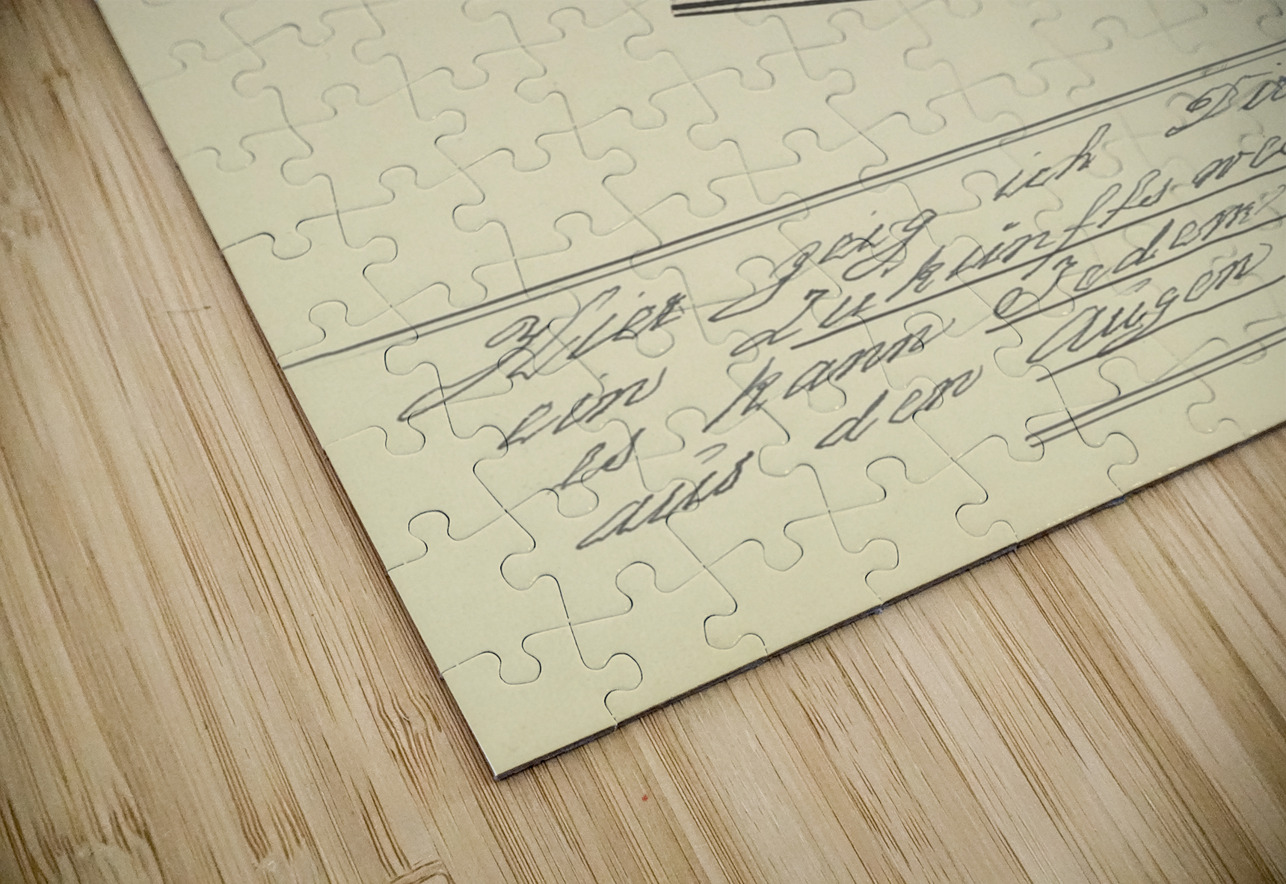 Hier zeig ich Di
ein Zukunfts-we
es kann Jedem
aus den Augen